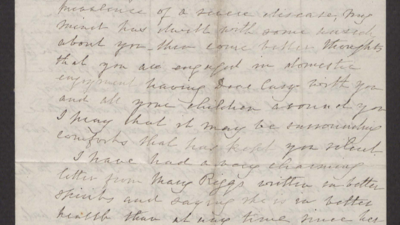 prevalence of a severe disease, my
mind has dwelt with some
about you. then come better thoughts
that you are engaged in domestic
enjoyment having Dear with you
and all your children around you
I pray that it may be surrounding
comforts that has kept you silent.
I have had a very charming
letter from Mary written in better
spirits and saying she is in better
health than at any time since her